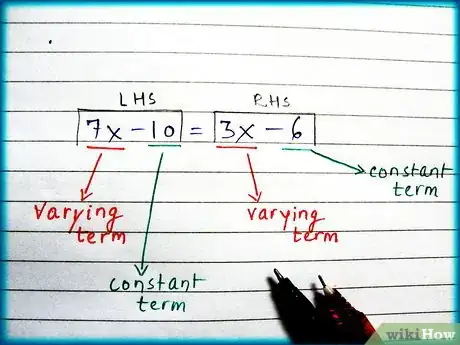 LHS RHS
7x - 10 = 3x - 6
constant
term
varying
term
varying
term
constant
term
wikiHow